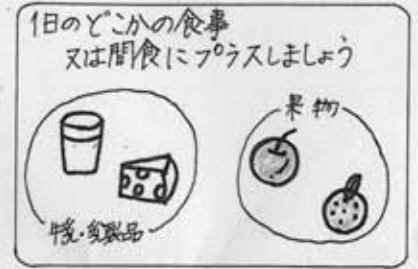 1日のどこかの食事
又は間食にプラスしましょう
果物
牛乳・乳製品